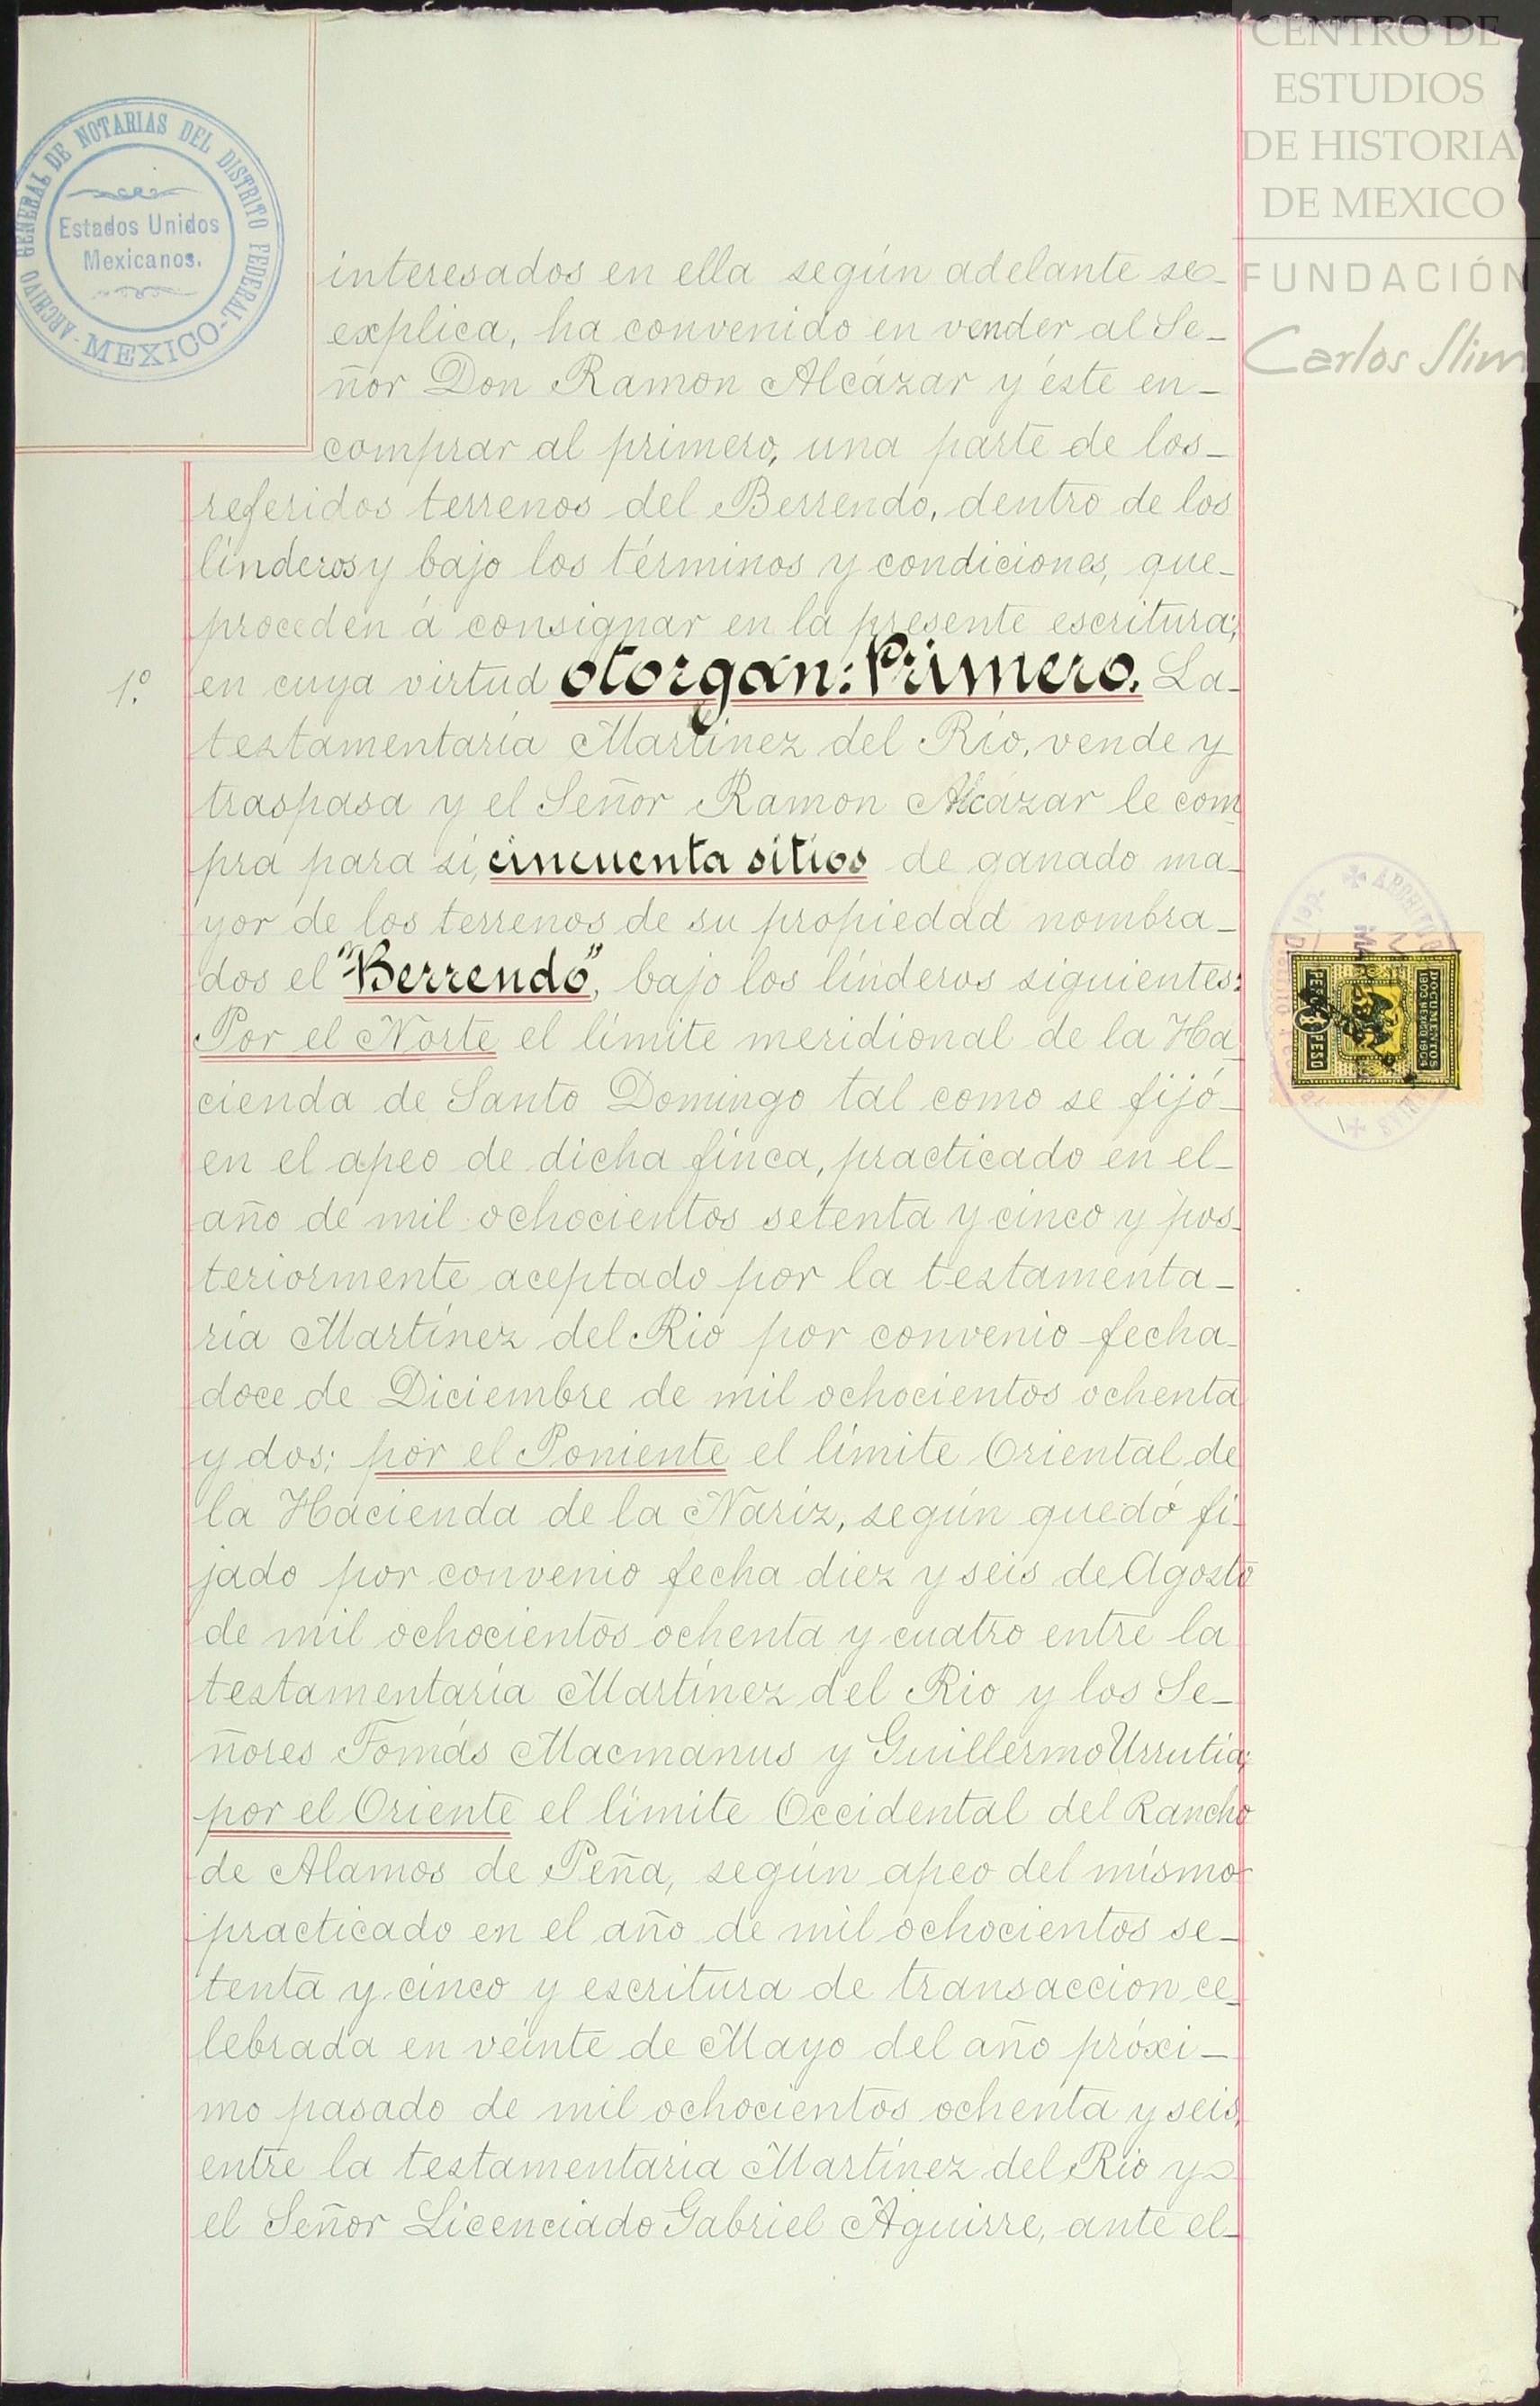 CENTRO DE
ESTUDIOS
DE HISTORIA
DE MEXICO
FUNDACIÓN
Carlos Slim
ARCHIVO GENERAL DE NOTARIAS DEL DISTRITO FEDERAL - MEXICO -
Estados Unidos
Mexicanos.
interesados en ella según adelante se-
explica, ha convenido en vender al Se-
ñor Don Ramon Alcázar y éste en-
comprar al primero, una parte de los-
referidos terrenos del Berrendo, dentro de los
linderos y bajo los términos y condiciones, que-
proceden á consignar en la presente escritura;
1º. en cuya virtud otorgan: Primero. La-
testamentaría Martínez del Río, vende y
traspasa y el Señor Ramon Alcázar le com-
pra para sí, cincuenta sitios de ganado ma-
yor de los terrenos de su propiedad nombra-
dos el "Berrendo", bajo los linderos siguientes:
Por el Norte el límite meridional de la Ha-
cienda de Santo Domingo tal como se fijó-
en el apeo de dicha finca, practicado en el-
año de mil ochocientos setenta y cinco y pos-
teriormente aceptado por la testamenta-
ría Martínez del Rio por convenio fecha-
doce de Diciembre de mil ochocientos ochenta
y dos; por el Poniente el límite Oriental de
la Hacienda de la Nariz, según quedó fi-
jado por convenio fecha diez y seis de Agosto
de mil ochocientos ochenta y cuatro entre la
testamentaría Martínez del Rio y los Se-
ñores Tomás Macmanus y Guillermo Urrutia;
por el Oriente el límite Occidental del Rancho
de Alamos de Peña, según apeo del mismo
practicado en el año de mil ochocientos se-
tenta y cinco y escritura de transaccion ce-
lebrada en veinte de Mayo del año próxi-
mo pasado de mil ochocientos ochenta y seis,
entre la testamentaría Martínez del Rio y
el Señor Licenciado Gabriel Aguirre, ante el-
DOCUMENTOS
1903 MEXICO 1904
PESO 1 PESO